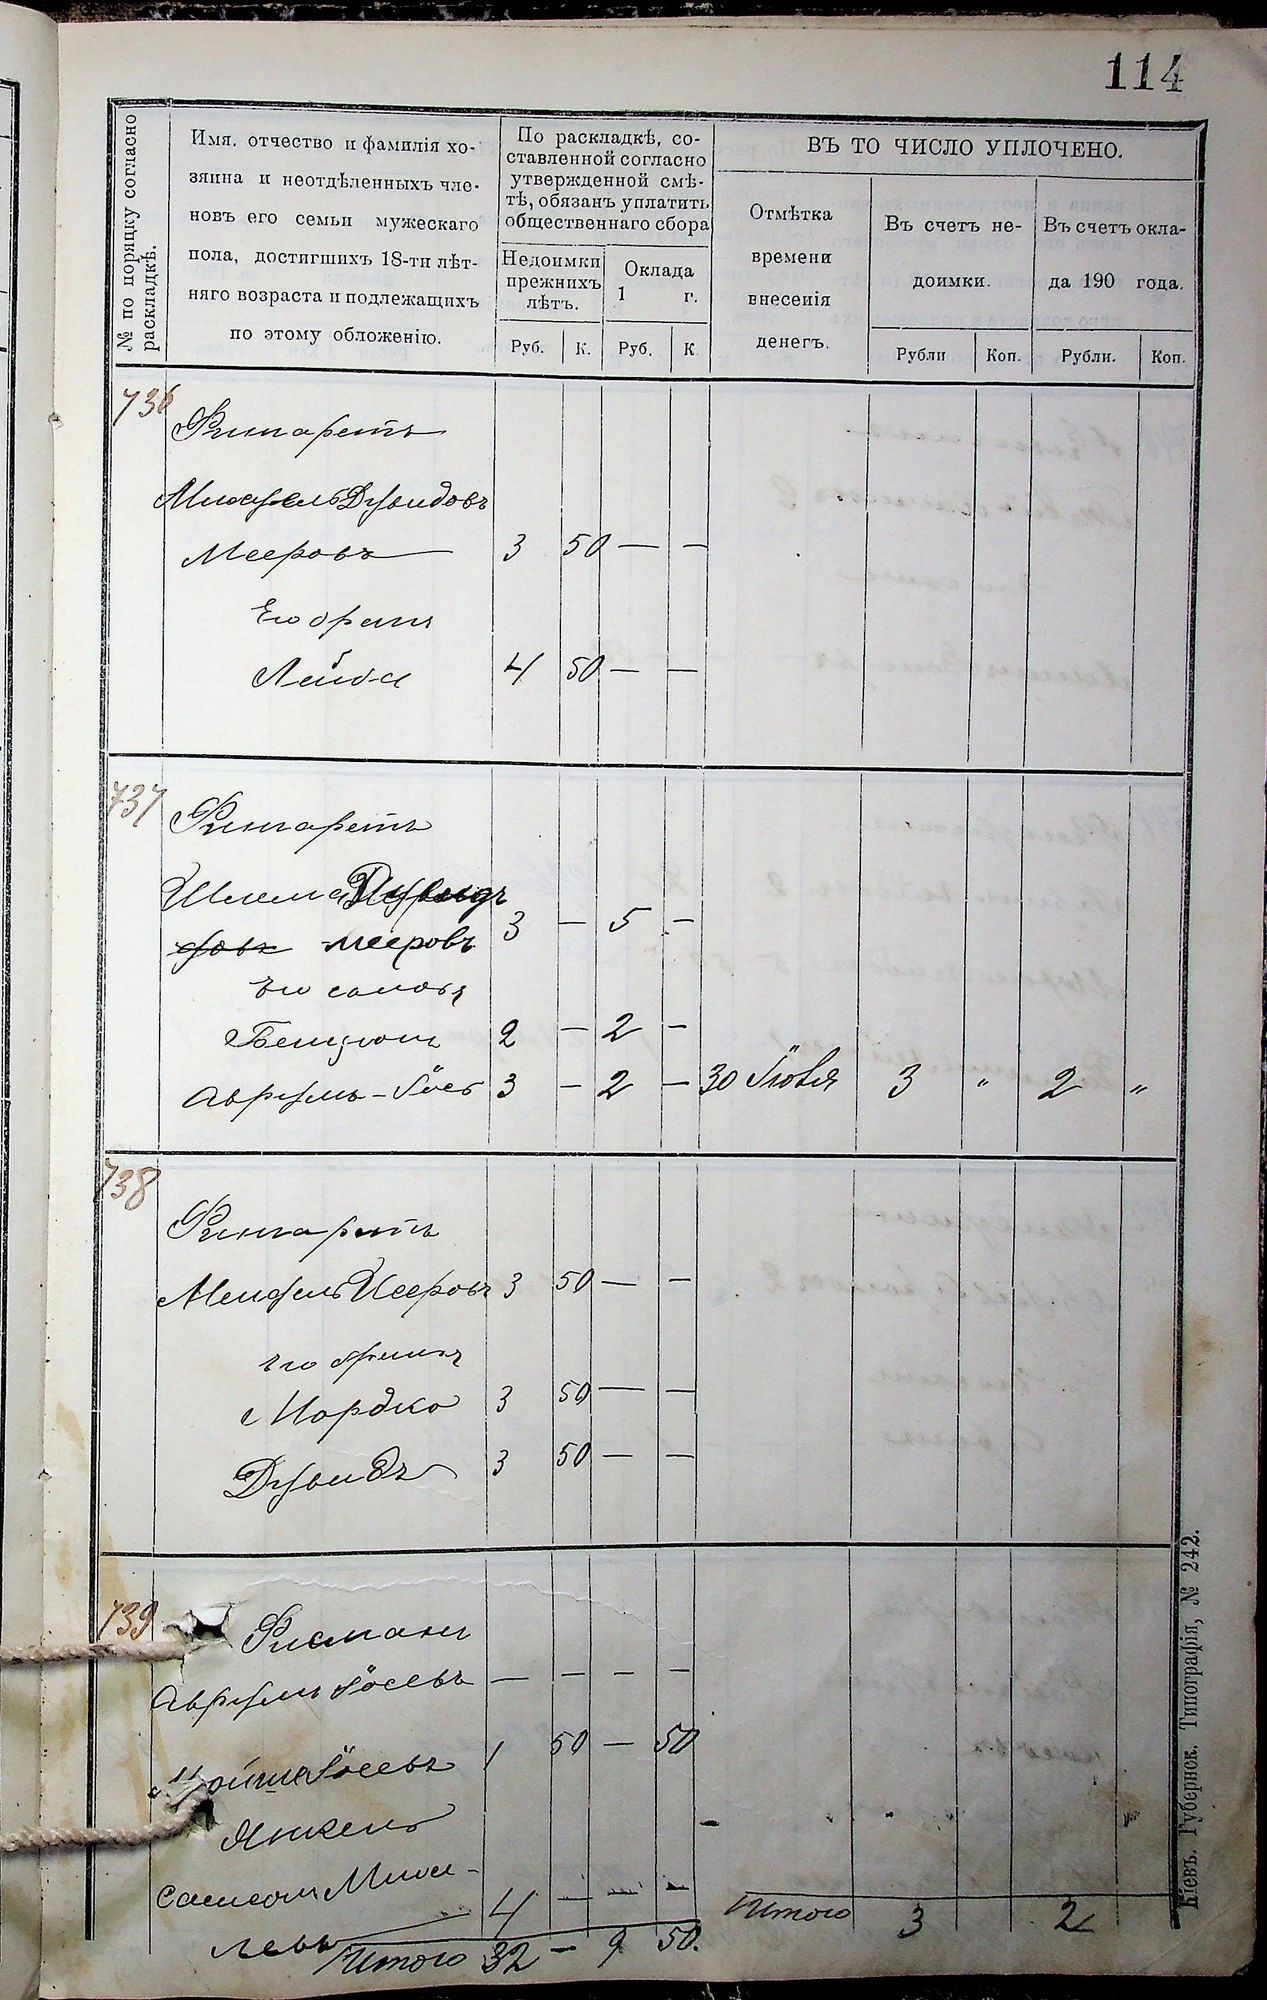 114
№ по порядку согласно
раскладкѣ.
Имя, отчество и фамилія хо-
зяина и неотдѣленныхъ чле-
новъ его семьи мужескаго
пола, достигшихъ 18-ти лѣт-
няго возраста и подлежащихъ
по этому обложенію.
По раскладкѣ, со-
ставленной согласно
утвержденной смѣ-
тѣ, обязанъ уплатить
общественнаго сбора
Недоимки
прежнихъ
лѣтъ.
Оклада
1 г.
Руб. К. Руб. К
ВЪ ТО ЧИСЛО УПЛОЧЕНО.
Отмѣтка
времени
внесенія
денегъ.
Въ счетъ не-
доимки.
Въ счетъ окла-
да 190 года.
Рубли Коп. Рубли. Коп.
736
Финаретъ
Дувидовъ
Мееровъ 3 50 — —
Его братъ
Лейба 4 50 — —
737
Финаретъ
Шлема Дувид
овъ мееровъ 3 — 5 —
Его сыновья
Бенціонъ 2 — 2 —
Аврумъ-Іось 3 — 2 — 30 Іюня 3 " 2 "
738
Финаретъ
Мендель Мееровъ 3 50 — —
Его братья
Мордко 3 50 — —
Дувидъ 3 50 — —
739
Фисманъ
Аврумъ Іосевъ — — — —
Мойше Іосевъ 1 50 — 50
Янкель
Самсонъ Миха-
левъ 4 — — —
Итого 32 — 9 50.
Итого 3 2
Кіевъ. Губернск. Типографія, № 242.